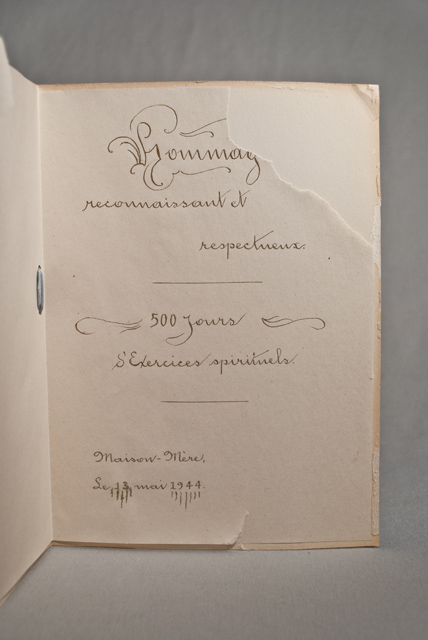 Hommag
reconnaissant et
respectueux.
500 Jours
d'Exercices spirituels.
Maison-Mère,
Le 13 mai 1944.